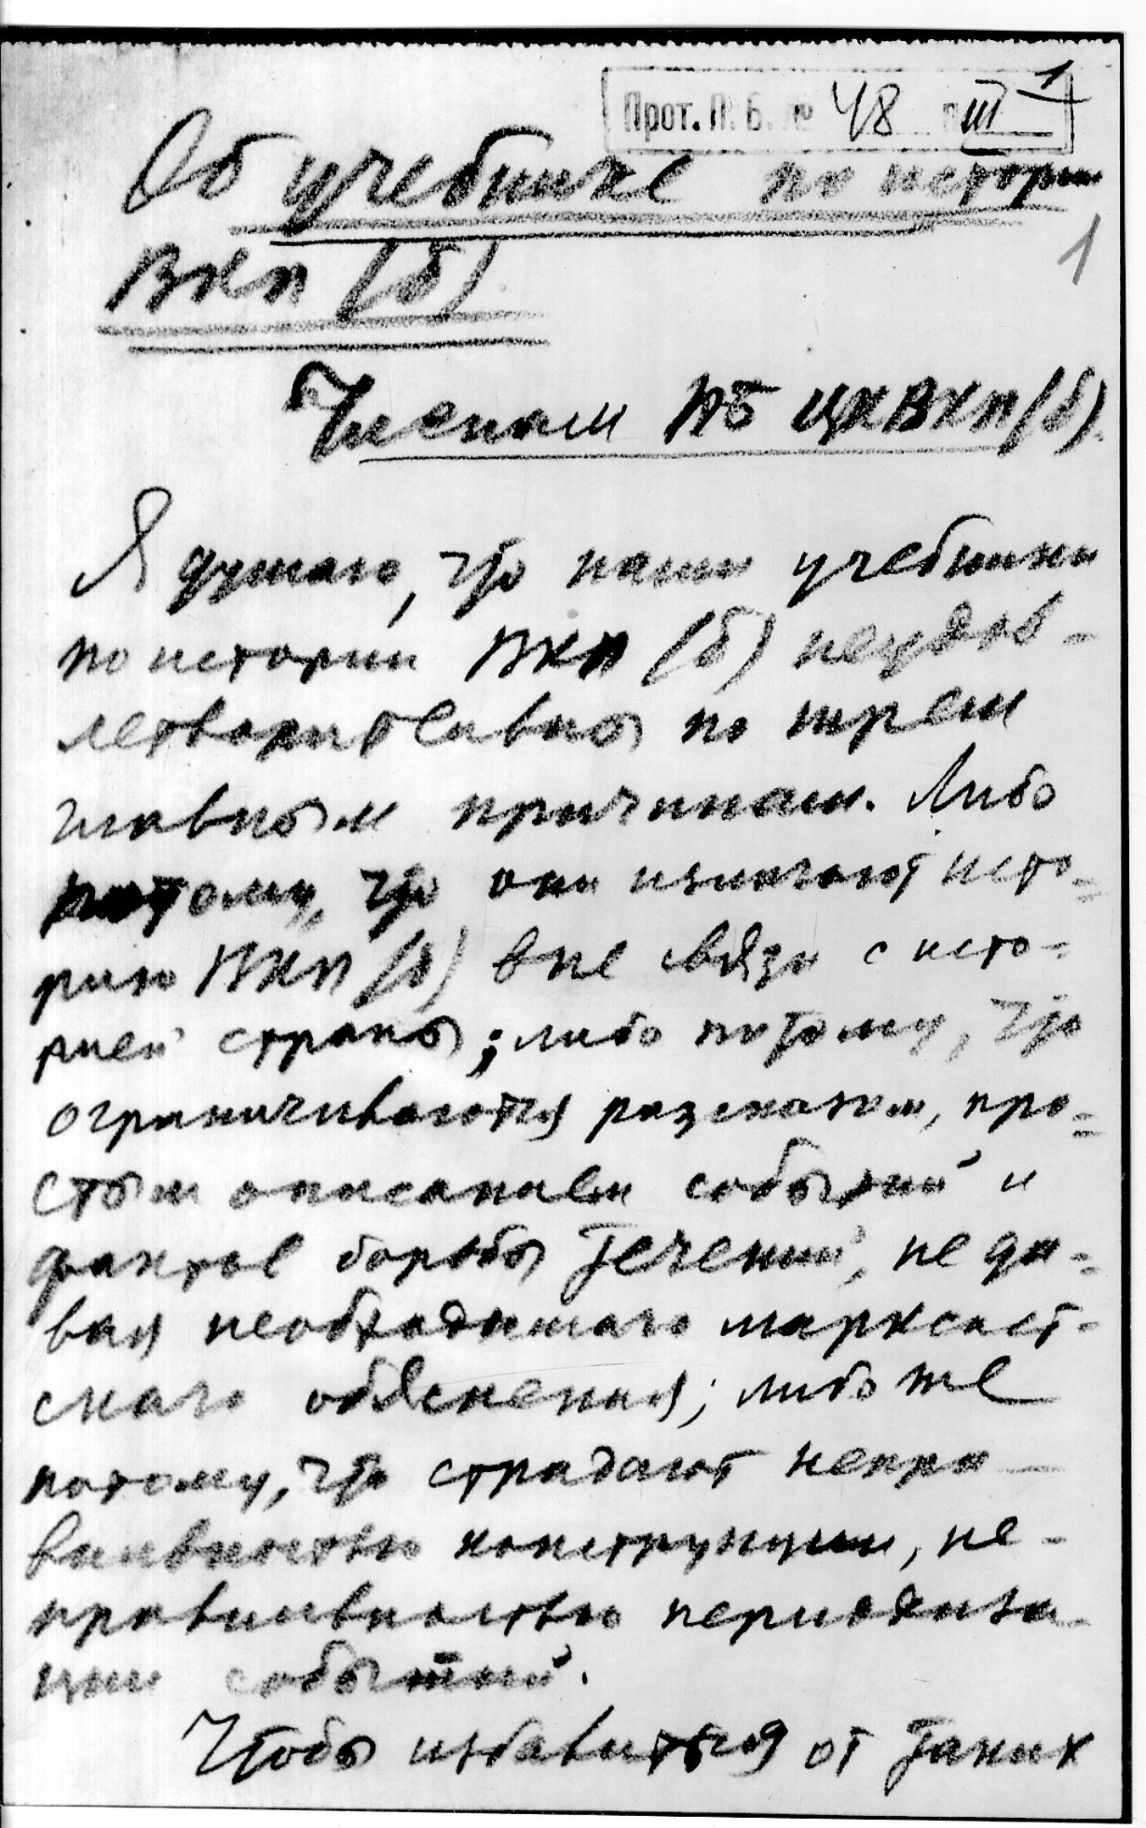 Прот. П. Б. № 48 п. III
1
Об учебнике по истории
1
ВКП (б)
Членам ПБ ЦК ВКП (б).
Я думаю, что наши учебники
по истории ВКП (б) неудов-
летворительны по трем
главным причинам. Либо
потому, что они излагают исто-
рию ВКП (б) вне связи с исто-
рией страны; либо потому, что
ограничиваются разсказом, про-
стым описанием событий и
фактов борьбы течений, не да-
вая необходимого марксист-
ского объяснения; либо же
потому, что страдают непра-
вильностью конструкции, не-
правильностью периодиза-
ции событий.
Чтобы избавиться от таких